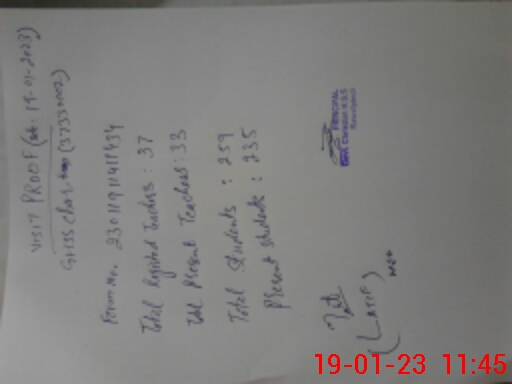 VISIT PROOF (dt: 19-01-2023)
GHSS (37330002)
Form No. 230119114111434
Total Registed Teachers : 37
Total Present Teachers : 33
Total Students : 259
Present Students : 235
PRINCIPAL
H.S.S
(LATIF)
19-01-23 11:45